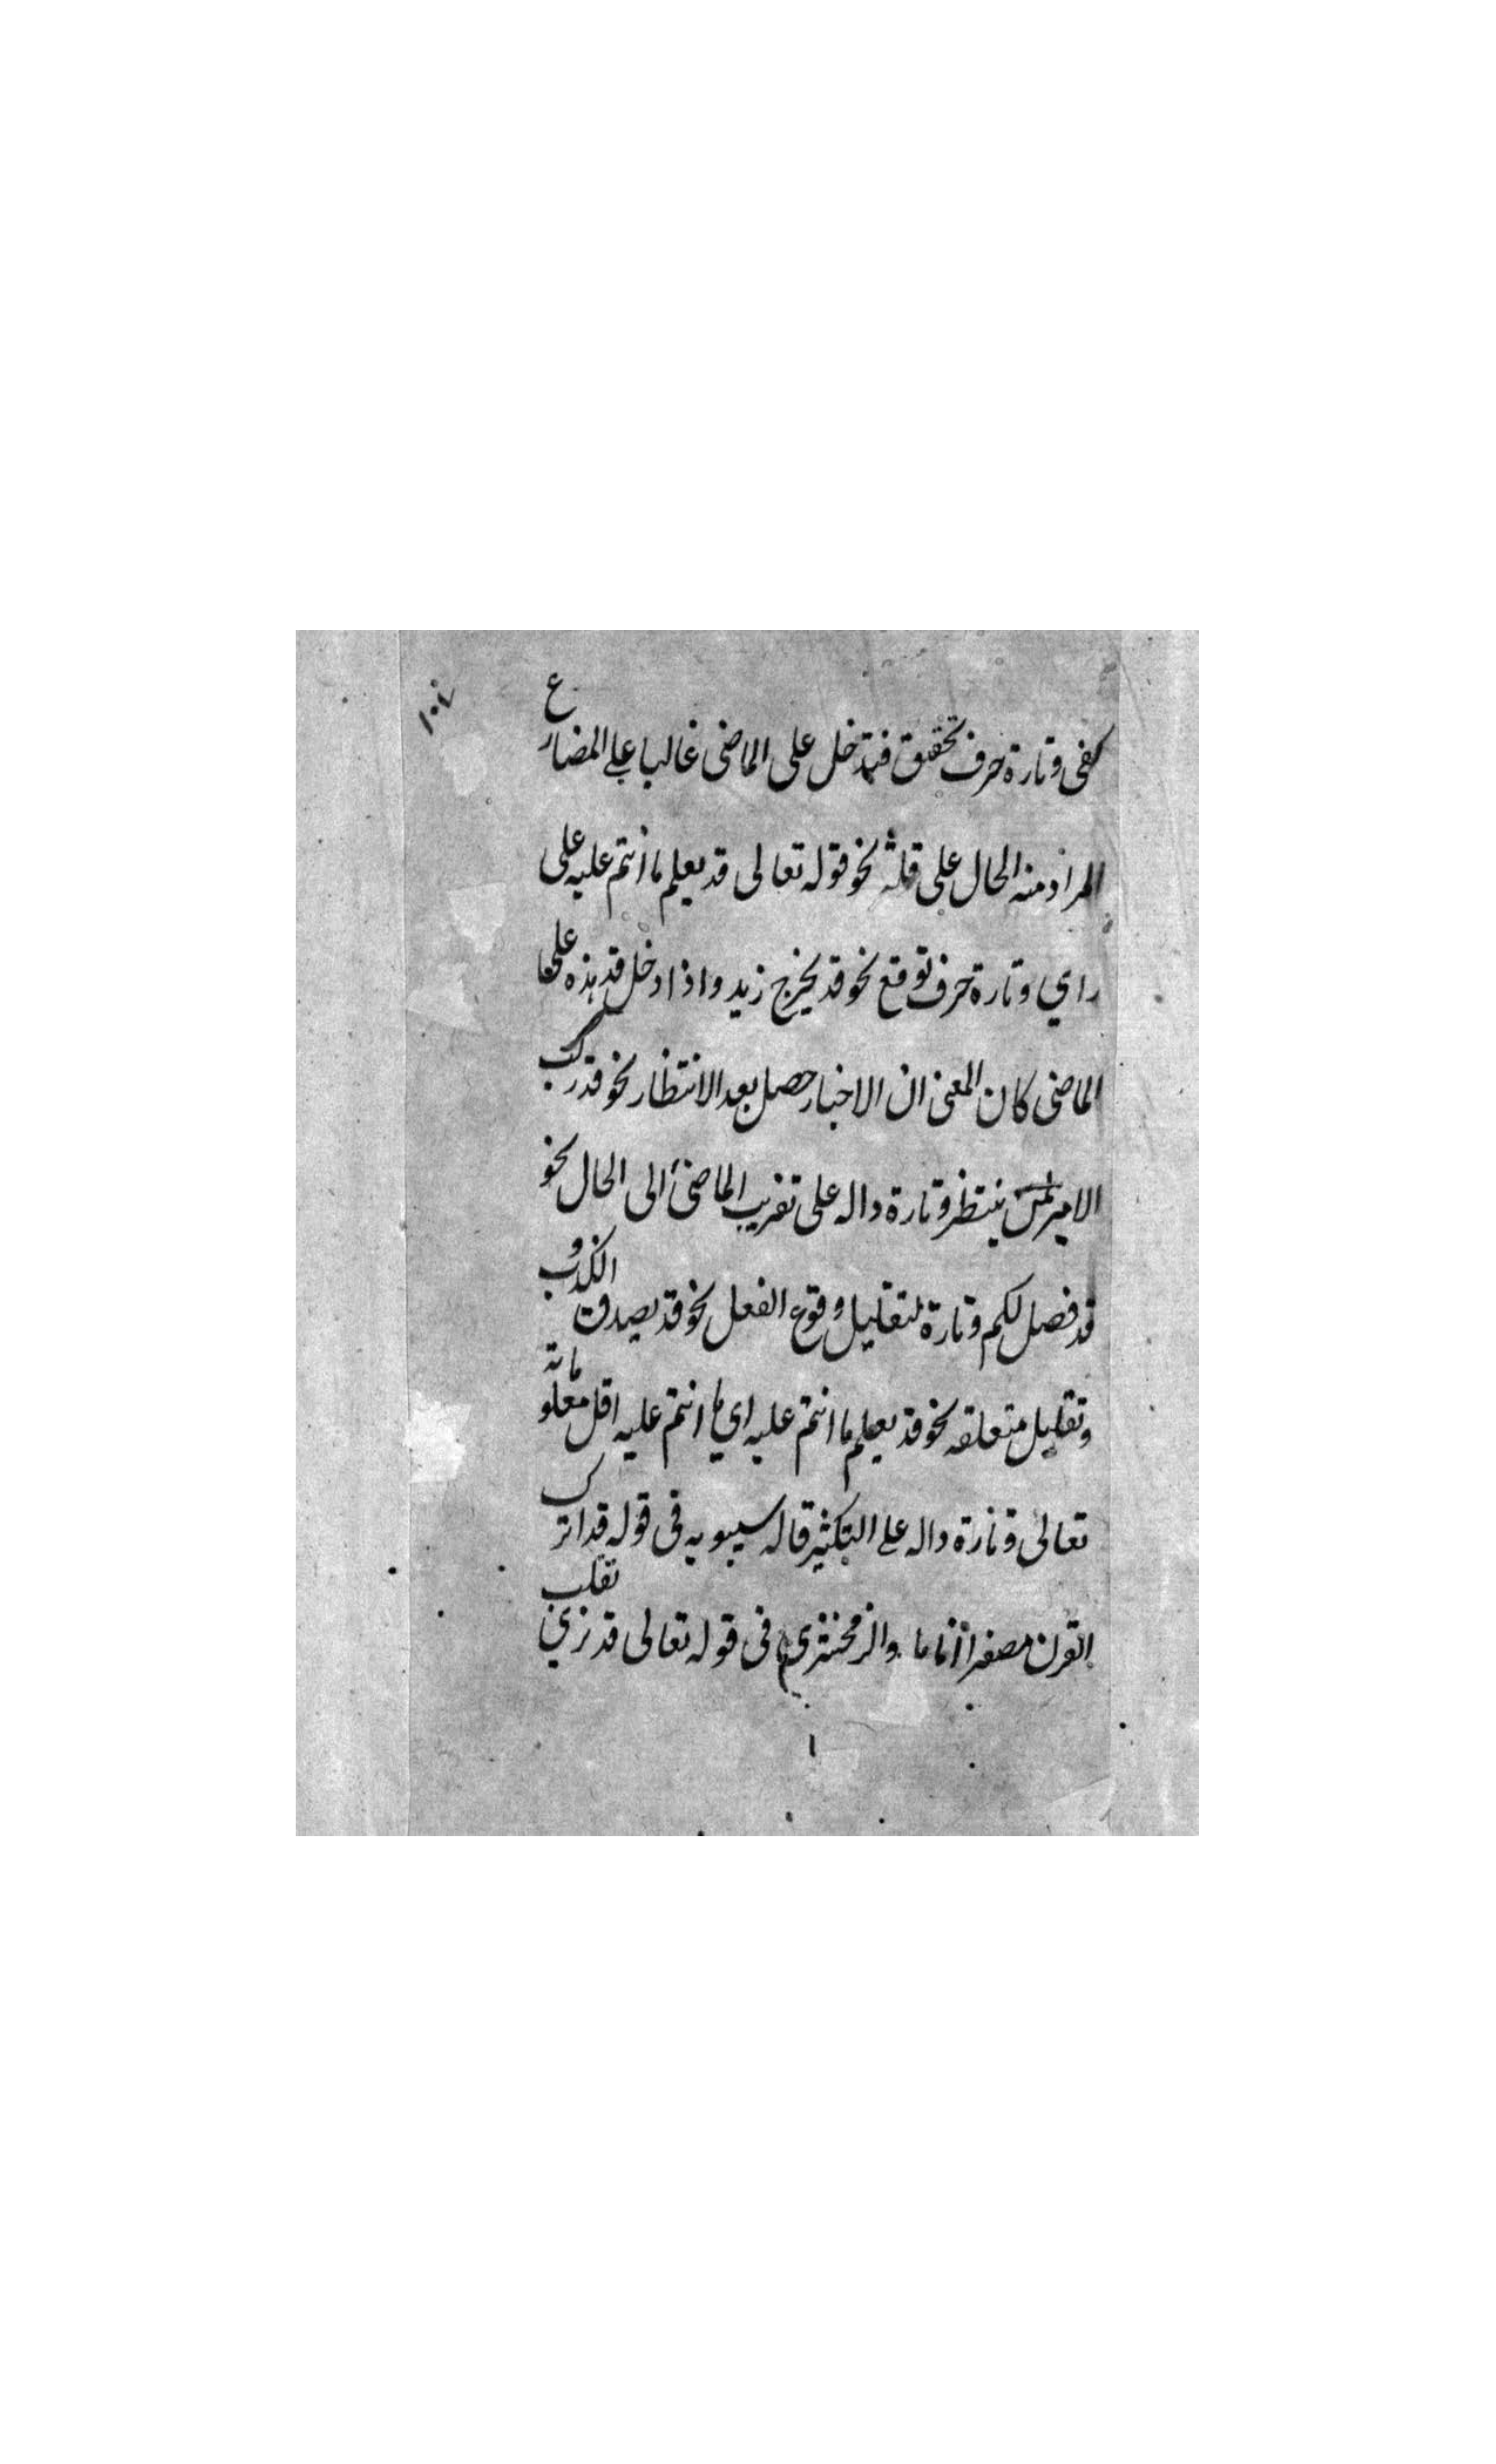 ١٠٤
كفى وتارة حرف تحقيق فتدخل على الماضى غالبا على المضارع
المراد منه الحال على قلة نحو قوله تعالى قد يعلم ما انتم عليه على
راي وتارة حرف توقع نحو قد يخرج زيد واذا دخل قد هذه على
الماضى كان المعنى ان الاخبار حصل بعد الانتظار نحو قد ركب
الامير لمن ينتظر وتارة داله على تقريب الماضى الى الحال نحو
قد فصل لكم وتارة لتقليل وقوع الفعل نحو قد يصدق الكذوب
وتقليل متعلقه نحو قد يعلم ما انتم عليه اي ما انتم عليه اقل معلوماته
تعالى وتارة داله على التكثير قاله سيبويه فى قوله قد اترك
القرن مصفرا انامله والزمخشري فى قوله تعالى قد نرى تقلب